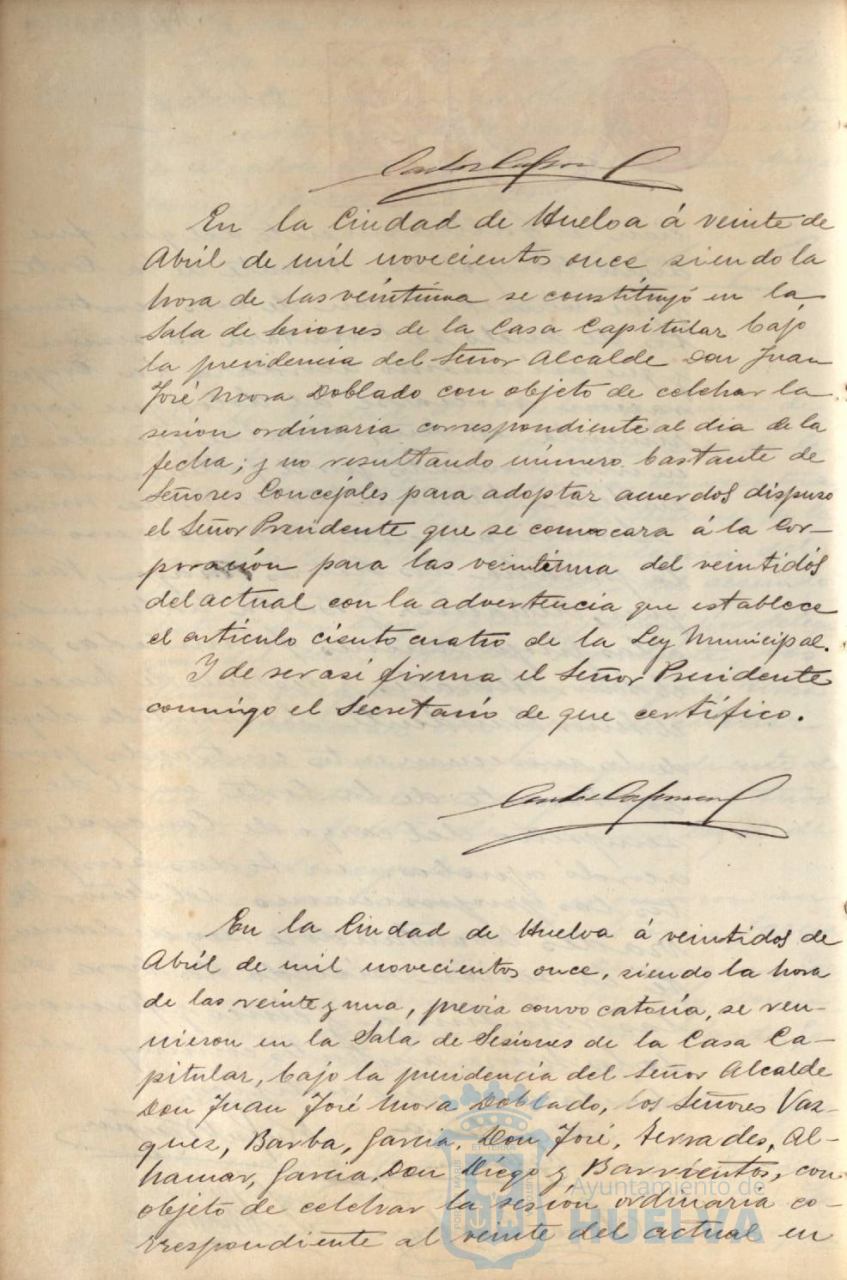 En la Ciudad de Huelva á veinte de
Abril de mil novecientos once siendo la
hora de las veintiuna se constituyó en la
Sala de Sesiones de la Casa Capitular bajo
la presidencia del Señor Alcalde Don Juan
José Mora Doblado con objeto de celebrar la
sesion ordinaria correspondiente al dia de la
fecha; y no resultando número bastante de
Señores Concejales para adoptar acuerdos dispuso
el Señor Presidente que se convocara á la Cor-
poración para las veintiuna del veintidós
del actual con la advertencia que establece
el artículo ciento cuatro de la Ley Municipal.
Y de ser así firma el Señor Presidente
conmigo el Secretario de que certifico.
En la Ciudad de Huelva á veintidos de
Abril de mil novecientos once, siendo la hora
de las veinte y una, previa convocatoria, se reu-
nieron en la Sala de Sesiones de la Casa Ca-
pitular, bajo la presidencia del Señor Alcalde
Don Juan José Mora Doblado, los Señores Vaz-
quez, Barba, Garcia, Don José, Terrades, Al-
hamar, Garcia, Don Diego y Barrientos, con
objeto de celebrar la sesion ordinaria co-
rrespondiente al veinte del actual en
Ayuntamiento de
HUELVA